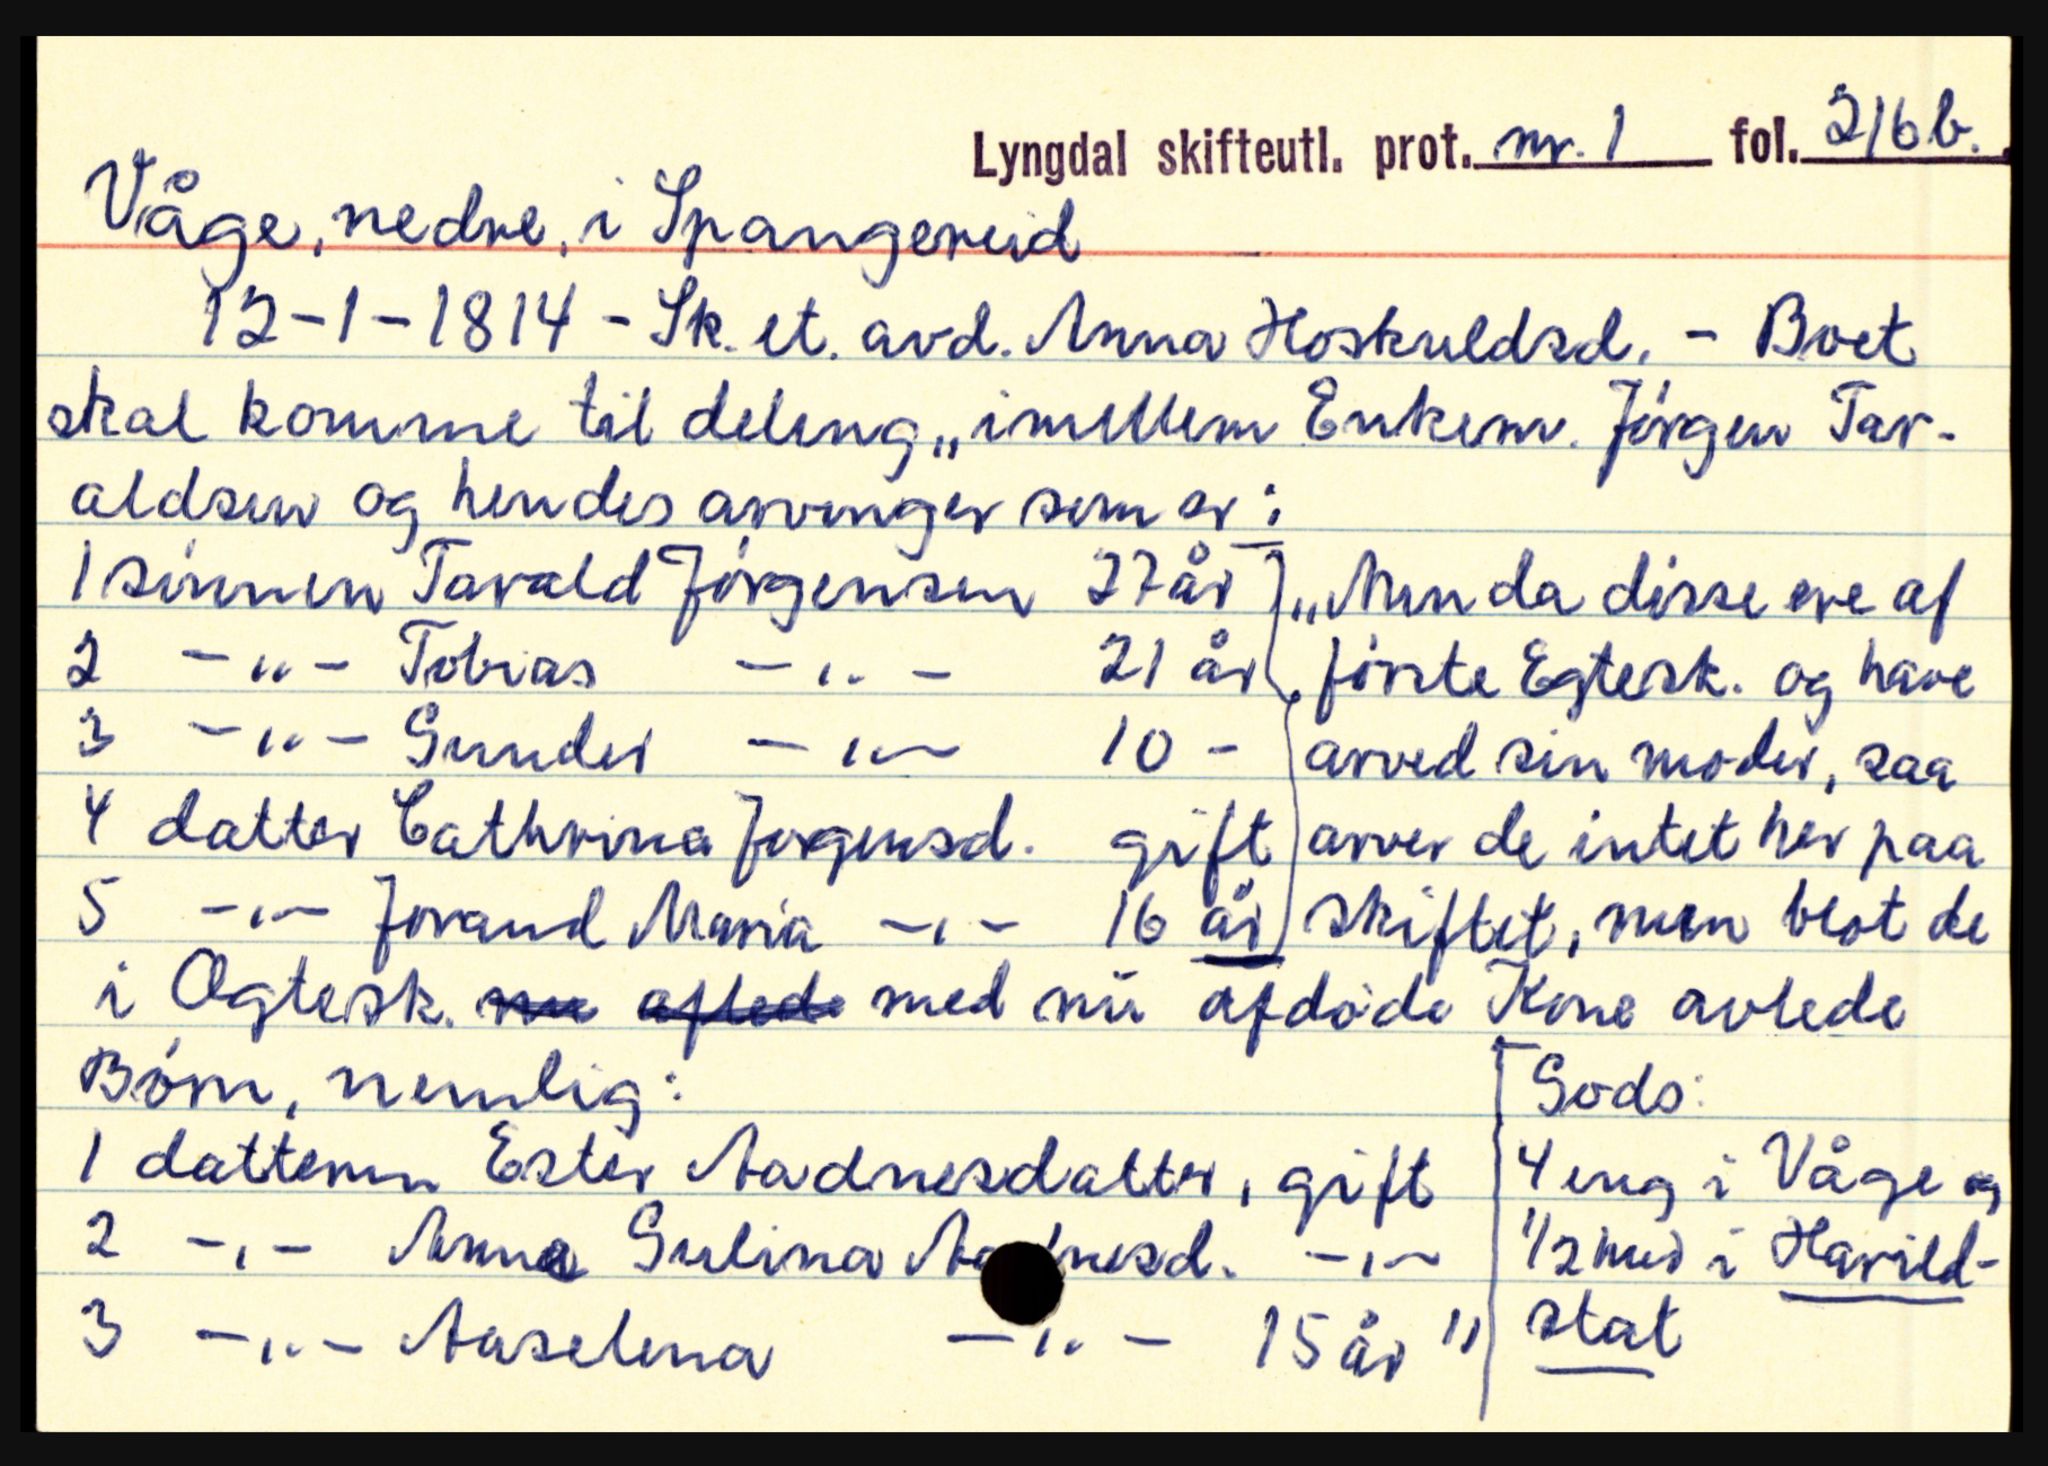 Lyngdal skifteutl. prot. nr. 1 fol. 216b.
Våge, nedre, i Spangereid
12-1-1814 - Sk. et. avd. Anna Hoskuldsd. - Boet
skal komme til deling „imellem Enkem. Jörgen Tar-
aldsen og hendes arvinger som er:
1 sönnen Tarald Jörgensen 27 år
2 -"- Tobias -"- 21 år
3 -"- Gunder -"- 10 -
4 datter Cathrina Jorgensd. gift
5 -"- Jorand Maria -"- 16 år
„Men da disse ere af
förste Egtesk. og have
arved sin moder, saa
arver de intet her paa
skiftet, men blot de
i Ægtesk. med nu afdöde Kone avlede
Börn, nemlig:
1 datteren Ester Aadnesdatter, gift
2 -"- Anna Gulina Aadnesd. -"-
3 -"- Aaselena -"- 15 år"
Gods:
4 eng i Våge og
1/2 hud i Harild-
stat